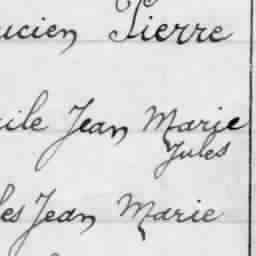 ucien Pierre
ile Jean Marie
Jules
les Jean Marie